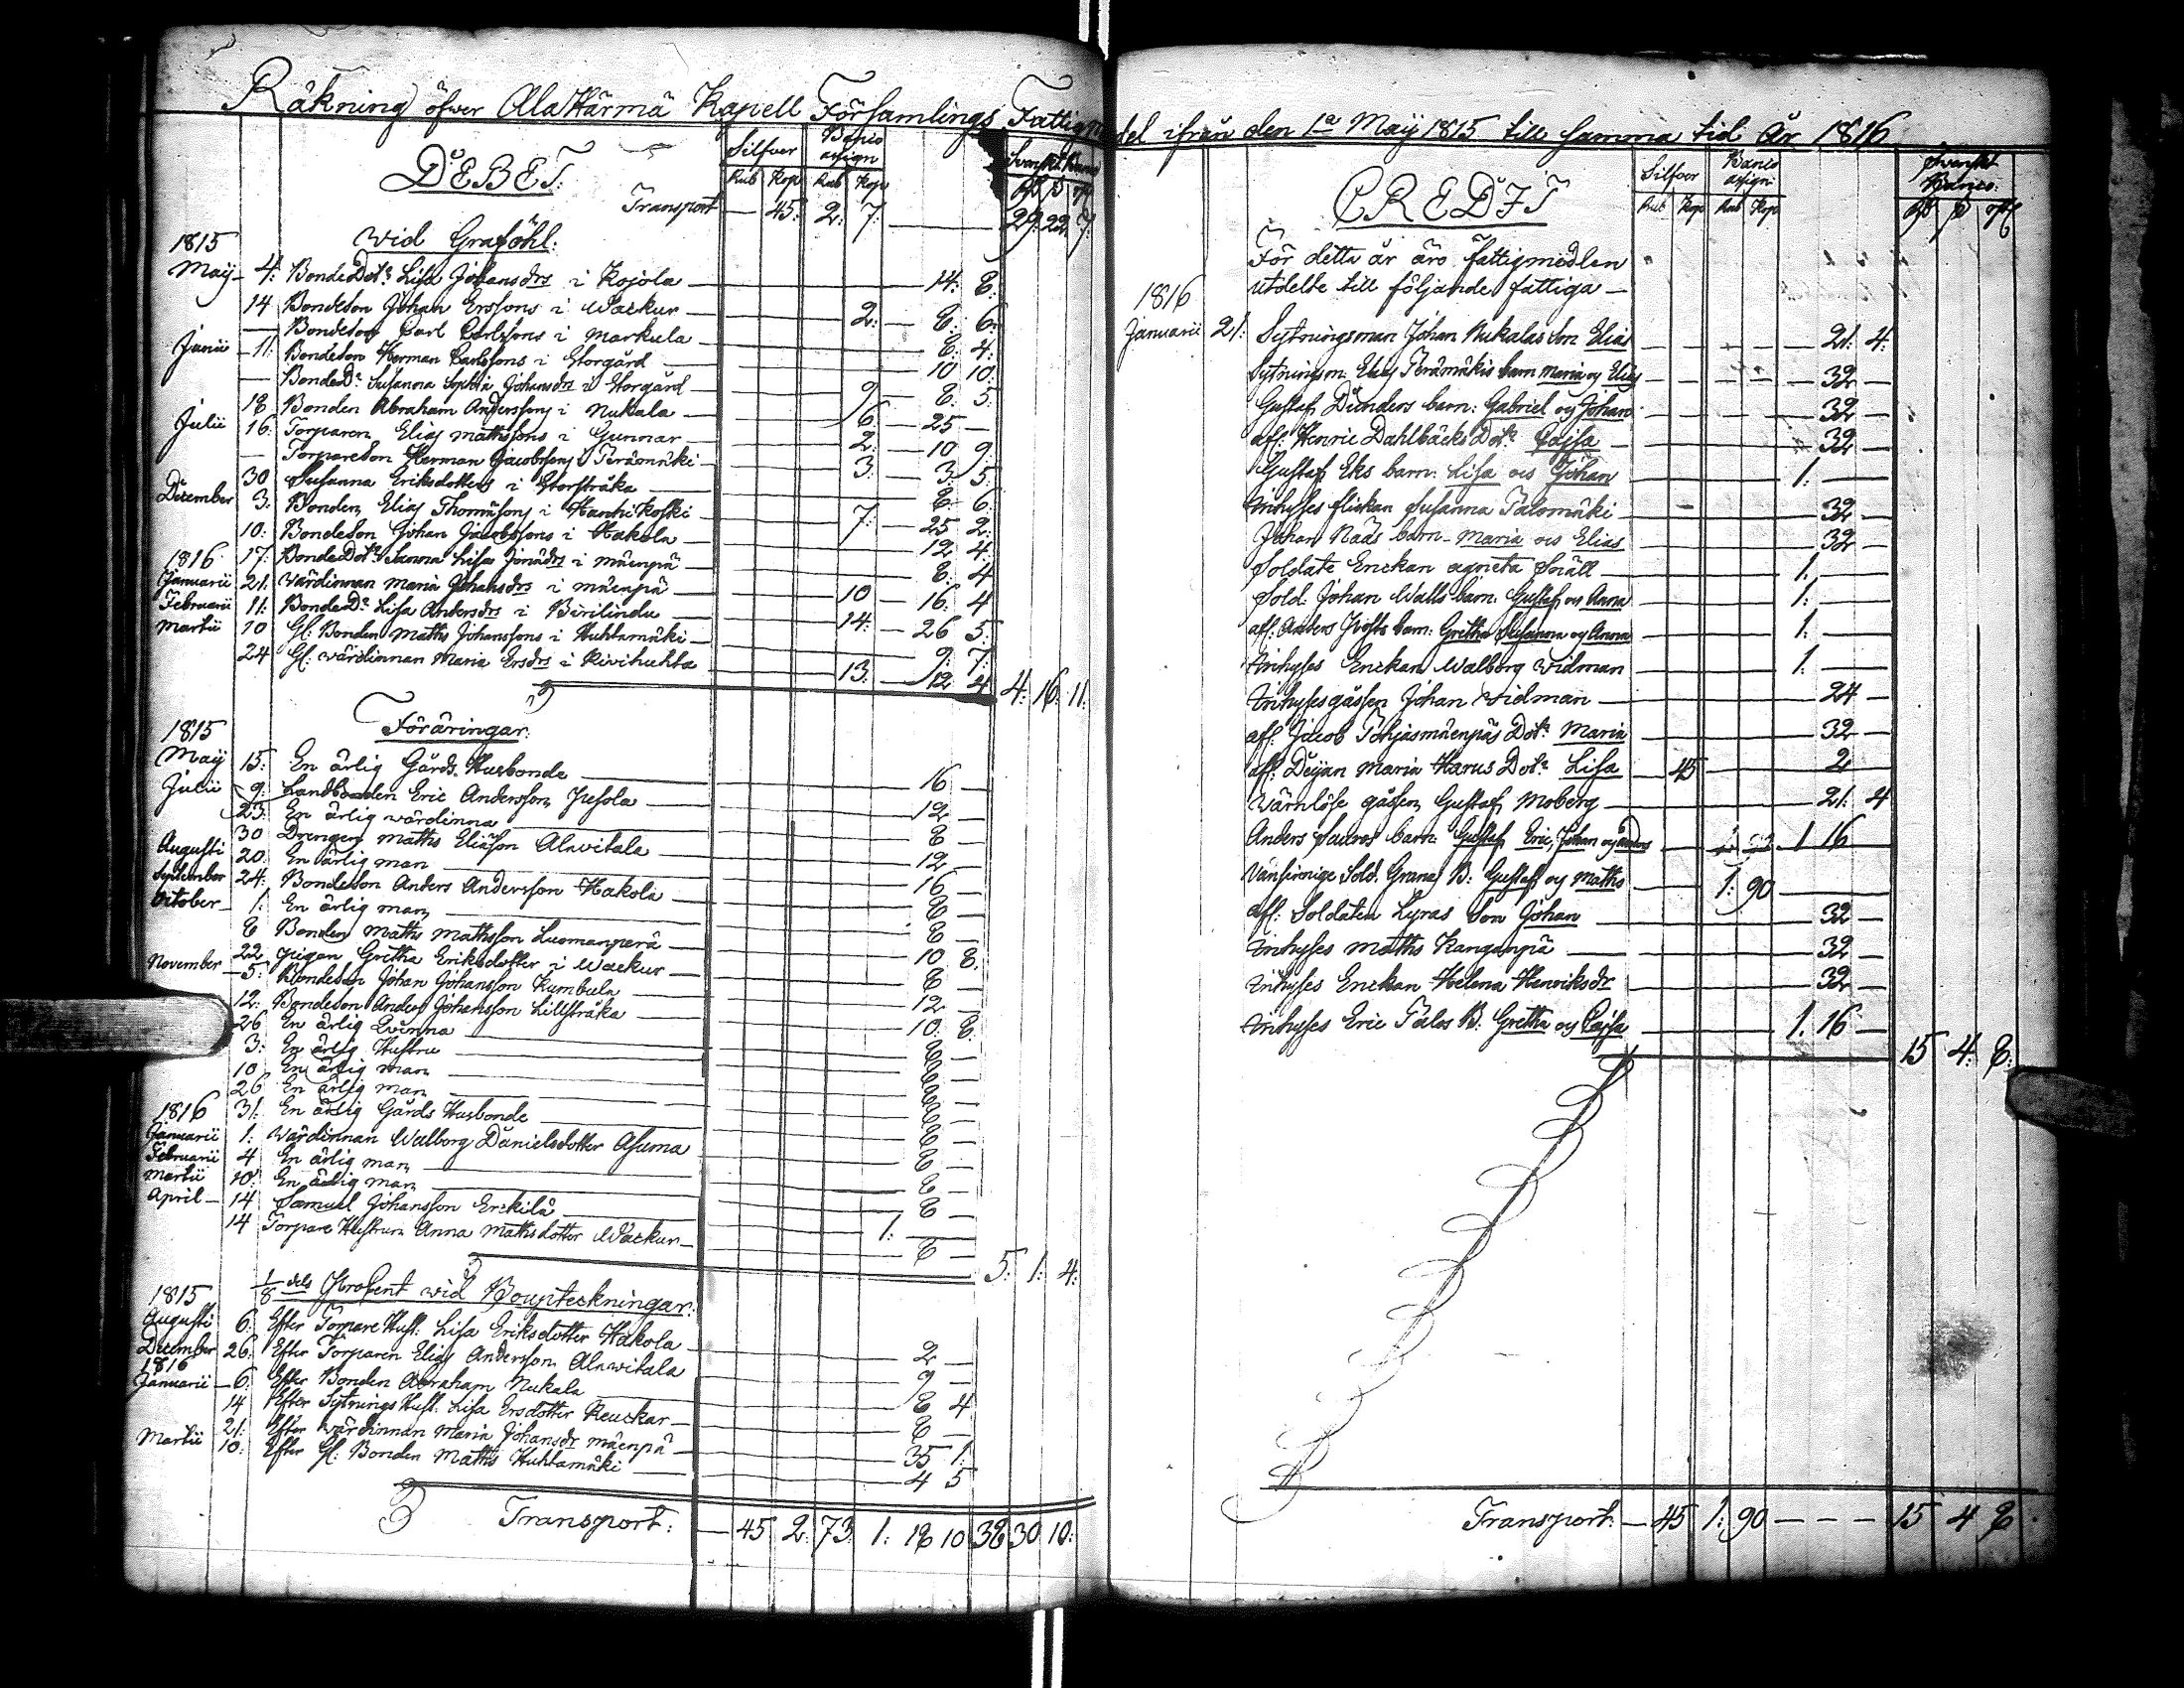 Räkning öfwer Ala Härmä Kapell Församlings Fattigm
DEBET:
Silfver Banco assign Svenskt Banco
Rub Kop Rub Kop
Transport — 45: 2: 7: — 29: 22 7:
1815 wid Graföhl:
Maij — 4: BondeDotr Lisa Johansdrs i Kojola — 14: 8:
14 Bondeson Johan Erssons i Wackur — 2: — 8: 6:
— Bondeson Carl Carlssons i Markula — 8: 4:
Junii — 11: Bondeson Herman Carlssons i Storgård — 10 10:
— BondeDr Susanna Sophia Johansdrs i Storgård — 9 — 8: 5:
18 Bonden Abraham Anderssons i Nukala — 6: — 25 —
Julii 16: Torparen Elias Mathssons i Gunnar — 2: — 10 9:
— Torpareson Herman Jacobssons i Perämäki — 3: — 3: 5:
30 Susanna Eriksdotters i Storstråka — 8 6:
December 3: Bonden Elias Thomassons i Hanhikoski — 7: — 25 2:
10: Bondeson Johan Jacobssons i Hakola — 12 4:
1816 17: BondeDotr Sanna Lisas Jonädrs i mäenpä — 8: 4
Januarii 21: wärdinnan Maria Johansdrs i mäenpä — 10 — 16: 4
Februarii 11: BondeDr Lisa Andersdrs i Birilinda — 14: — 26 5:
Martii 10 Gl: Bonden Maths Johanssons i Huhtamäki — 9: 7:
24 Gl: wärdinnan Maria Ersdrs i Kivihuhta — 13: — 12 4 4: 16: 11:
1815 Föräringar:
Maij 15: En ärlig Gårds Husbonde — 16 —
Julii 9: Landbonden Eric Andersson Jusola — 12 —
23: En ärlig wärdinna — 8 —
30 Drengen Maths Eliäson Alawitala — 12 —
Augusti 20: En ärlig man — 16 —
September 24: Bondeson Anders Andersson Hakola — 8 —
October — 1: En ärlig man — 8 —
8 Bonden Maths Mathsson Luomanperä — 10 8:
22 Pigan Gretha Eriksdotter i Wackur — 8 —
November — 5: Bondeson Johan Johansson Kumbula — 12 —
12: Bondeson Anders Johansson Lillstråka — 10: 8:
26 En ärlig Qvinna — 8 —
3: En ärlig Hustru — 8 —
10 En ärlig man — 8 —
26 En ärlig man — 8 —
1816 31: En ärlig Gårds Husbonde — 8 —
Januarii 1: wärdinnan Walborg Danielsdotter Asuma — 8 —
Februarii 4 En ärlig man — 8 —
Martii 10: En ärlig man — 8 —
April — 14 Samuel Johansson Erckilä — 1: —
14 Torpare Hustrun Anna Mathsdotter Wackur — 8 — 5: 1: 4:
1815 1/8 dels Procent wid Boupteckningar:
Augusti 6: Efter Torpare Hust: Lisa Eriksdotter Hakola — 2 —
December 26: Efter Torparen Elias Andersson Alawitala — 9 —
1816
Januarii — 6: Efter Bonden Abraham Nukala — 8 4
14 Efter Sytnings Hust: Lisa Ersdotter Keuckar — 8 —
21: Efter wärdinnan Maria Johansdr mäenpä — 35 1:
Martii 10: Efter Gl: Bonden Maths Huhtamäki — 4 5
Transport: — 45 2: 73: 1: 18 10 38 30 10:
del ifrån den 1a Maij 1815 till samma tid År 1816
CREDIT
Silfver Banco assign Svenskt Banco:
Rub Kop Rub Kop
För detta år äro fattigmedlen
utdelte till följande fattiga —
1816
Januarii 21: Sytningsman Johan Nukalas Son Elias — 21: 4:
Sytningsm: Elias Perämäkis barn Maria og Elias — 32 —
Gustaf Dunders barn: Gabriel og Johan — 32 —
afl: Henric Dahlbäcks Dotr Cajsa — 32 —
Gustaf Eks barn: Lisa och Johan — 1: —
Inhyses flickan Susanna Talomäki — 32 —
Johan Nääs barn — Maria och Elias — 32 —
Soldate Enckan Agneta Snäll — 1: —
Sold: Johan Walls barn: Gustaf och Anna — 1: —
afl: Anders barn: Gretha Susanna og Anna — 1: —
Inhyses Enckan Walborg Widman — 1: —
Inhysesgåssen Johan Widman — 24 —
afl: Jacob Pohjasmäenpäs Dotr Maria — 32 —
afl: Dejan Maria Harus Dotr Lisa — 45 — 2 —
Wärnlöse gåssen Gustaf Moberg — 21: 4
Anders Sauros barn: Gustaf Eric, Johan og Anders — 1 16 —
Vansinnige Sold: Grans B: Gustaf og Maths — 1: 90 —
afl: Soldaten Lyras Son Johan — 32 —
Inhyses Maths Kangaspä — 32 —
Inhyses Enckan Helena Henriksdr — 32 —
Inhyses Eric Talos B: Gretha og Cajsa — 1: 16 —
15 4: 8:
Transport: — 45 1: 90 — — — 15 4 8